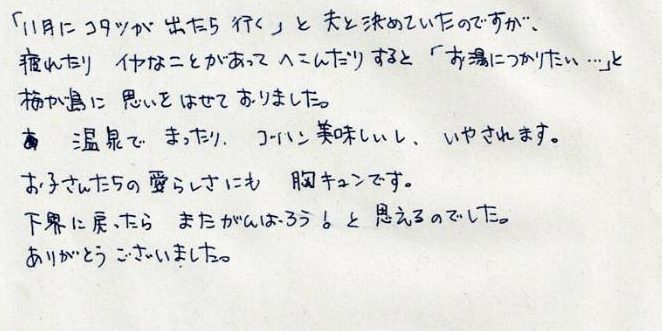 「11月に コタツが 出たら 行く」と 夫と決めていたのですが、
疲れたり イヤなことがあって へこんだりすると「お湯につかりたい…」と
梅が島に 思いをはせておりました。
温泉で まったり、ゴハン美味しいし、いやされます。
お子さんたちの愛らしさにも 胸キュンです。
下界に戻ったら またがんばろう！と 思えるのでした。
ありがとうございました。